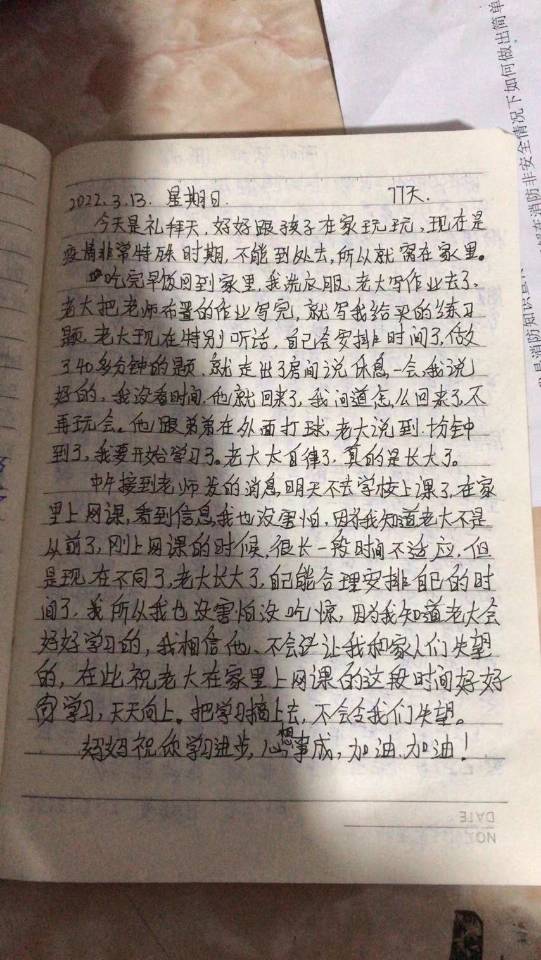 县消防知识宣
在消防非安全情况下如何做出简单
2022.3.13. 星期日. 77天.
今天是礼拜天,好好跟孩子在家玩玩,现在是
疫情非常特殊时期,不能到处去,所以就窝在家里。
吃完早饭回到家里,我洗衣服,老大写作业去了,
老大把老师布置的作业写完,就写我给买的练习
题,老大现在特别听话,自己会安排时间了,做
了40多分钟的题,就走出了房间说休息一会,我说
好的,我没看时间,他就回来了,我问道怎么回来了,不
再玩会。他跟弟弟在外面打球,老大说到十分钟
到了,我要开始学习了。老大太自律了,真的是长大了。
中午接到老师发的消息,明天不去学校上课了,在家
里上网课,看到信息我也没害怕,因为我知道老大不是
从前了,刚上网课的时候,很长一段时间不适应,但
是现在不同了,老大长大了,自己能合理安排自己的时
间了,我所从我也没害怕没吃惊,因为我知道老大会
好好学习的,我相信他、不会让我和家人们失望
的,在此祝老大在家里上网课的这段时间好好
学习,天天向上。把学习搞上去,不会令我们失望。
妈妈祝你学习进步,心想事成,加油.加油!
DATE
NO